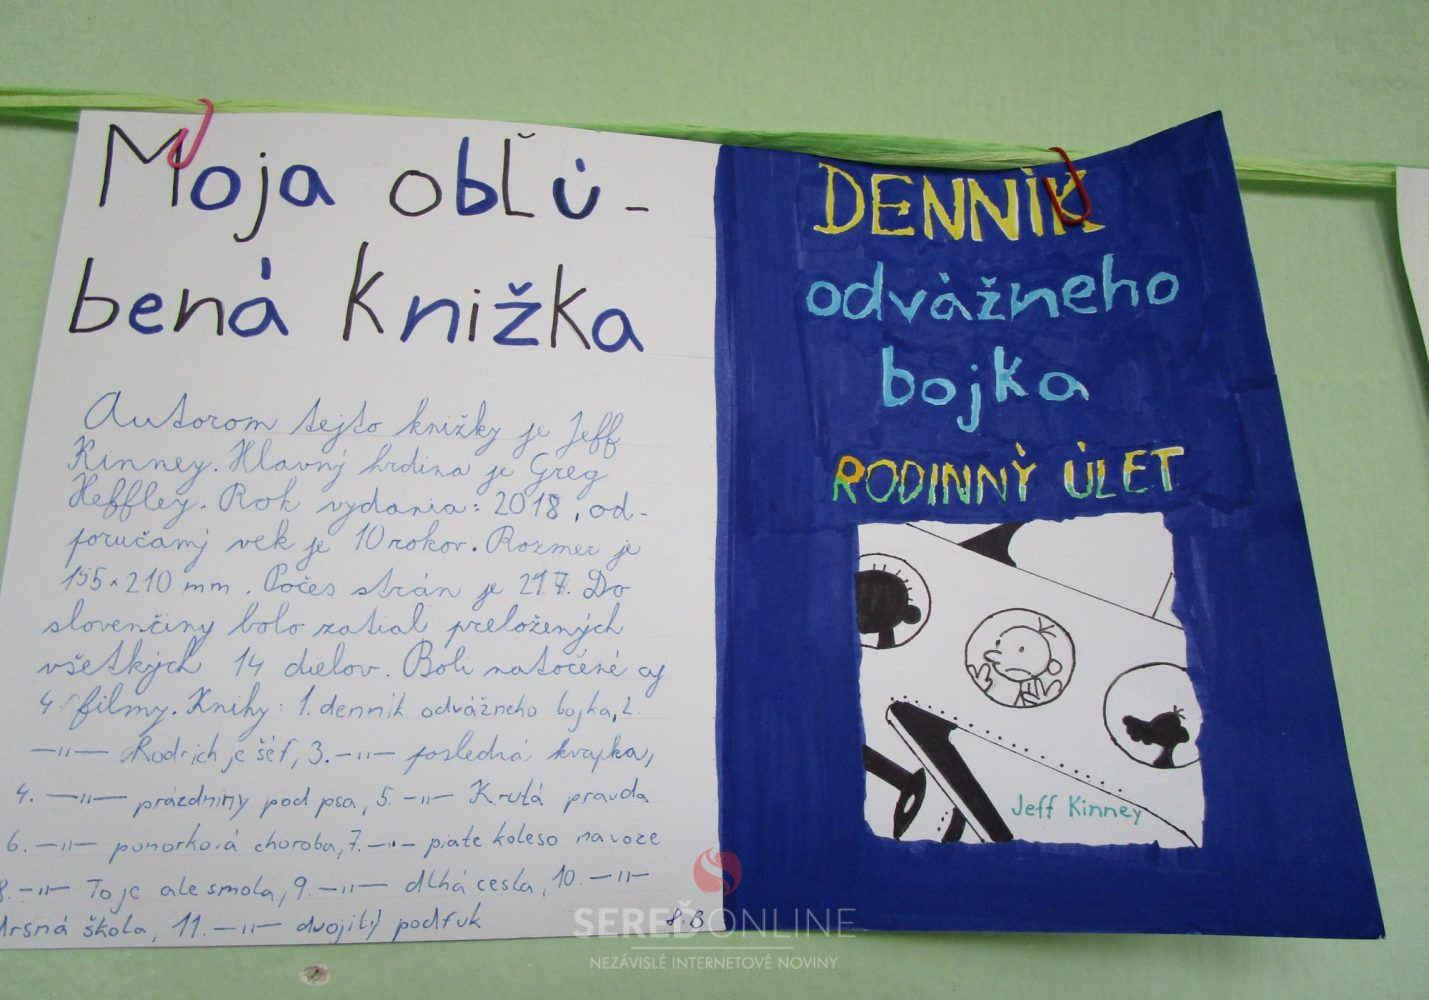 Moja obľú-
bená knižka
Autorom tejto knižky je Jeff
Kinney. Hlavný hrdina je Greg
Heffley. Rok vydania: 2018, od-
poručaný vek je 10 rokov. Rozmer je
155×210 mm. Počes strán je 217. Do
slovenčiny bolo zatial preložených
všetkých 14 dielov. Boli natočéné aj
4 filmy. Knihy: 1. denník odvážneho bojka, 2.
—"— Rodrich je šéf, 3. —"— posledná kvapka,
4. —"— prázdniny pod psa, 5. —"— Krutá pravda
6. —"— ponorková choroba, 7. —"— piate koleso na voze
8. —"— To je ale smola, 9. —"— dlhá cesta, 10. —"—
drsná škola, 11. —"— dvojitý podfuk
8.B
DENNÍK
odvážneho
bojka
RODINNÝ ÚLET
Jeff Kinney
SEREĎONLINE
NEZÁVISLÉ INTERNETOVÉ NOVINY